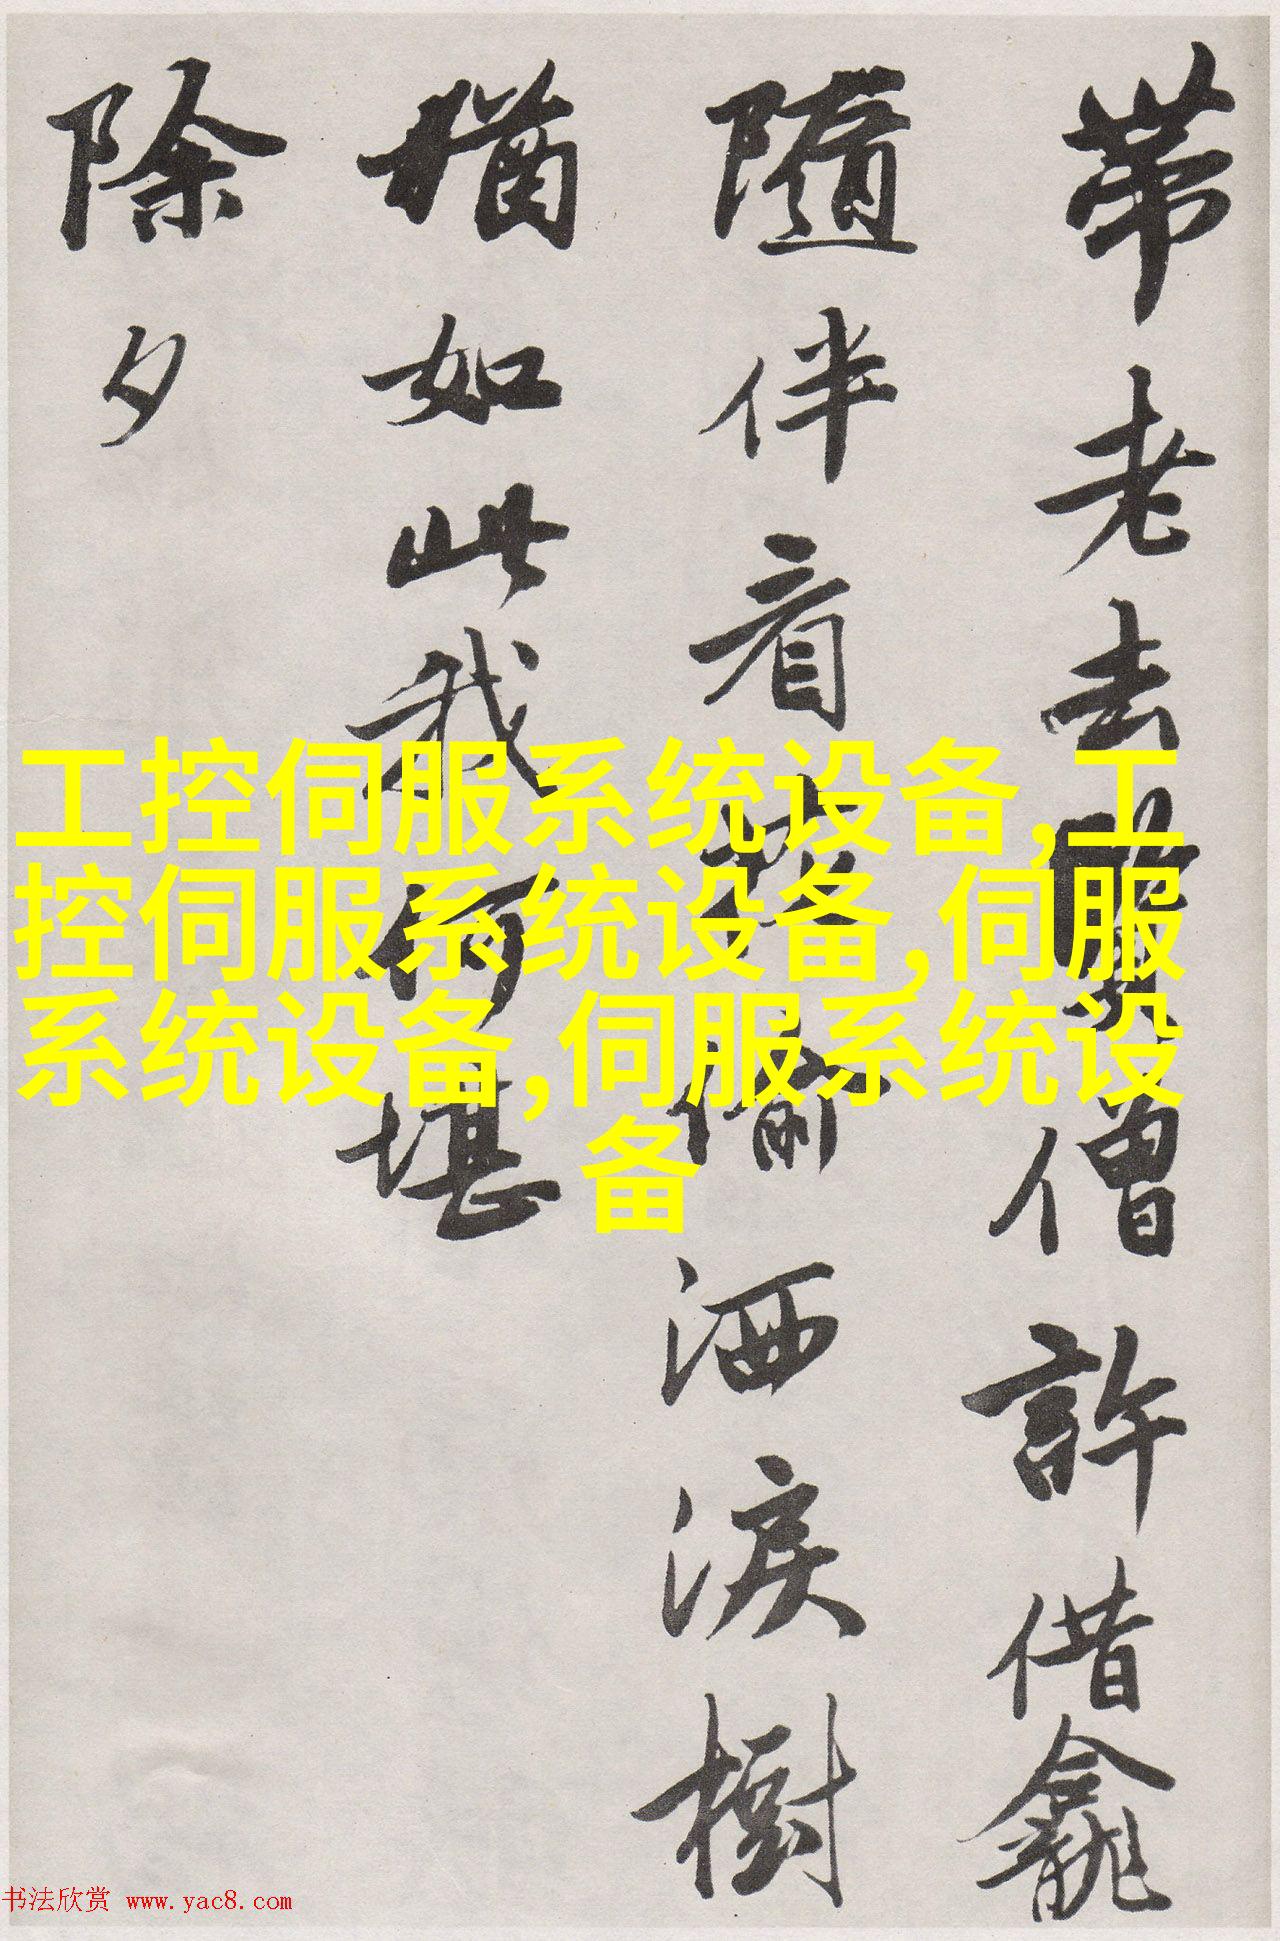 帶老去賢僧許借龕
隨伴看偷洒淚樹
猶如此我何堪
除夕
工控伺服系统设备,工
控伺服系统设备,伺服
系统设备,伺服系统设
备
书法欣赏 www.yac8.com